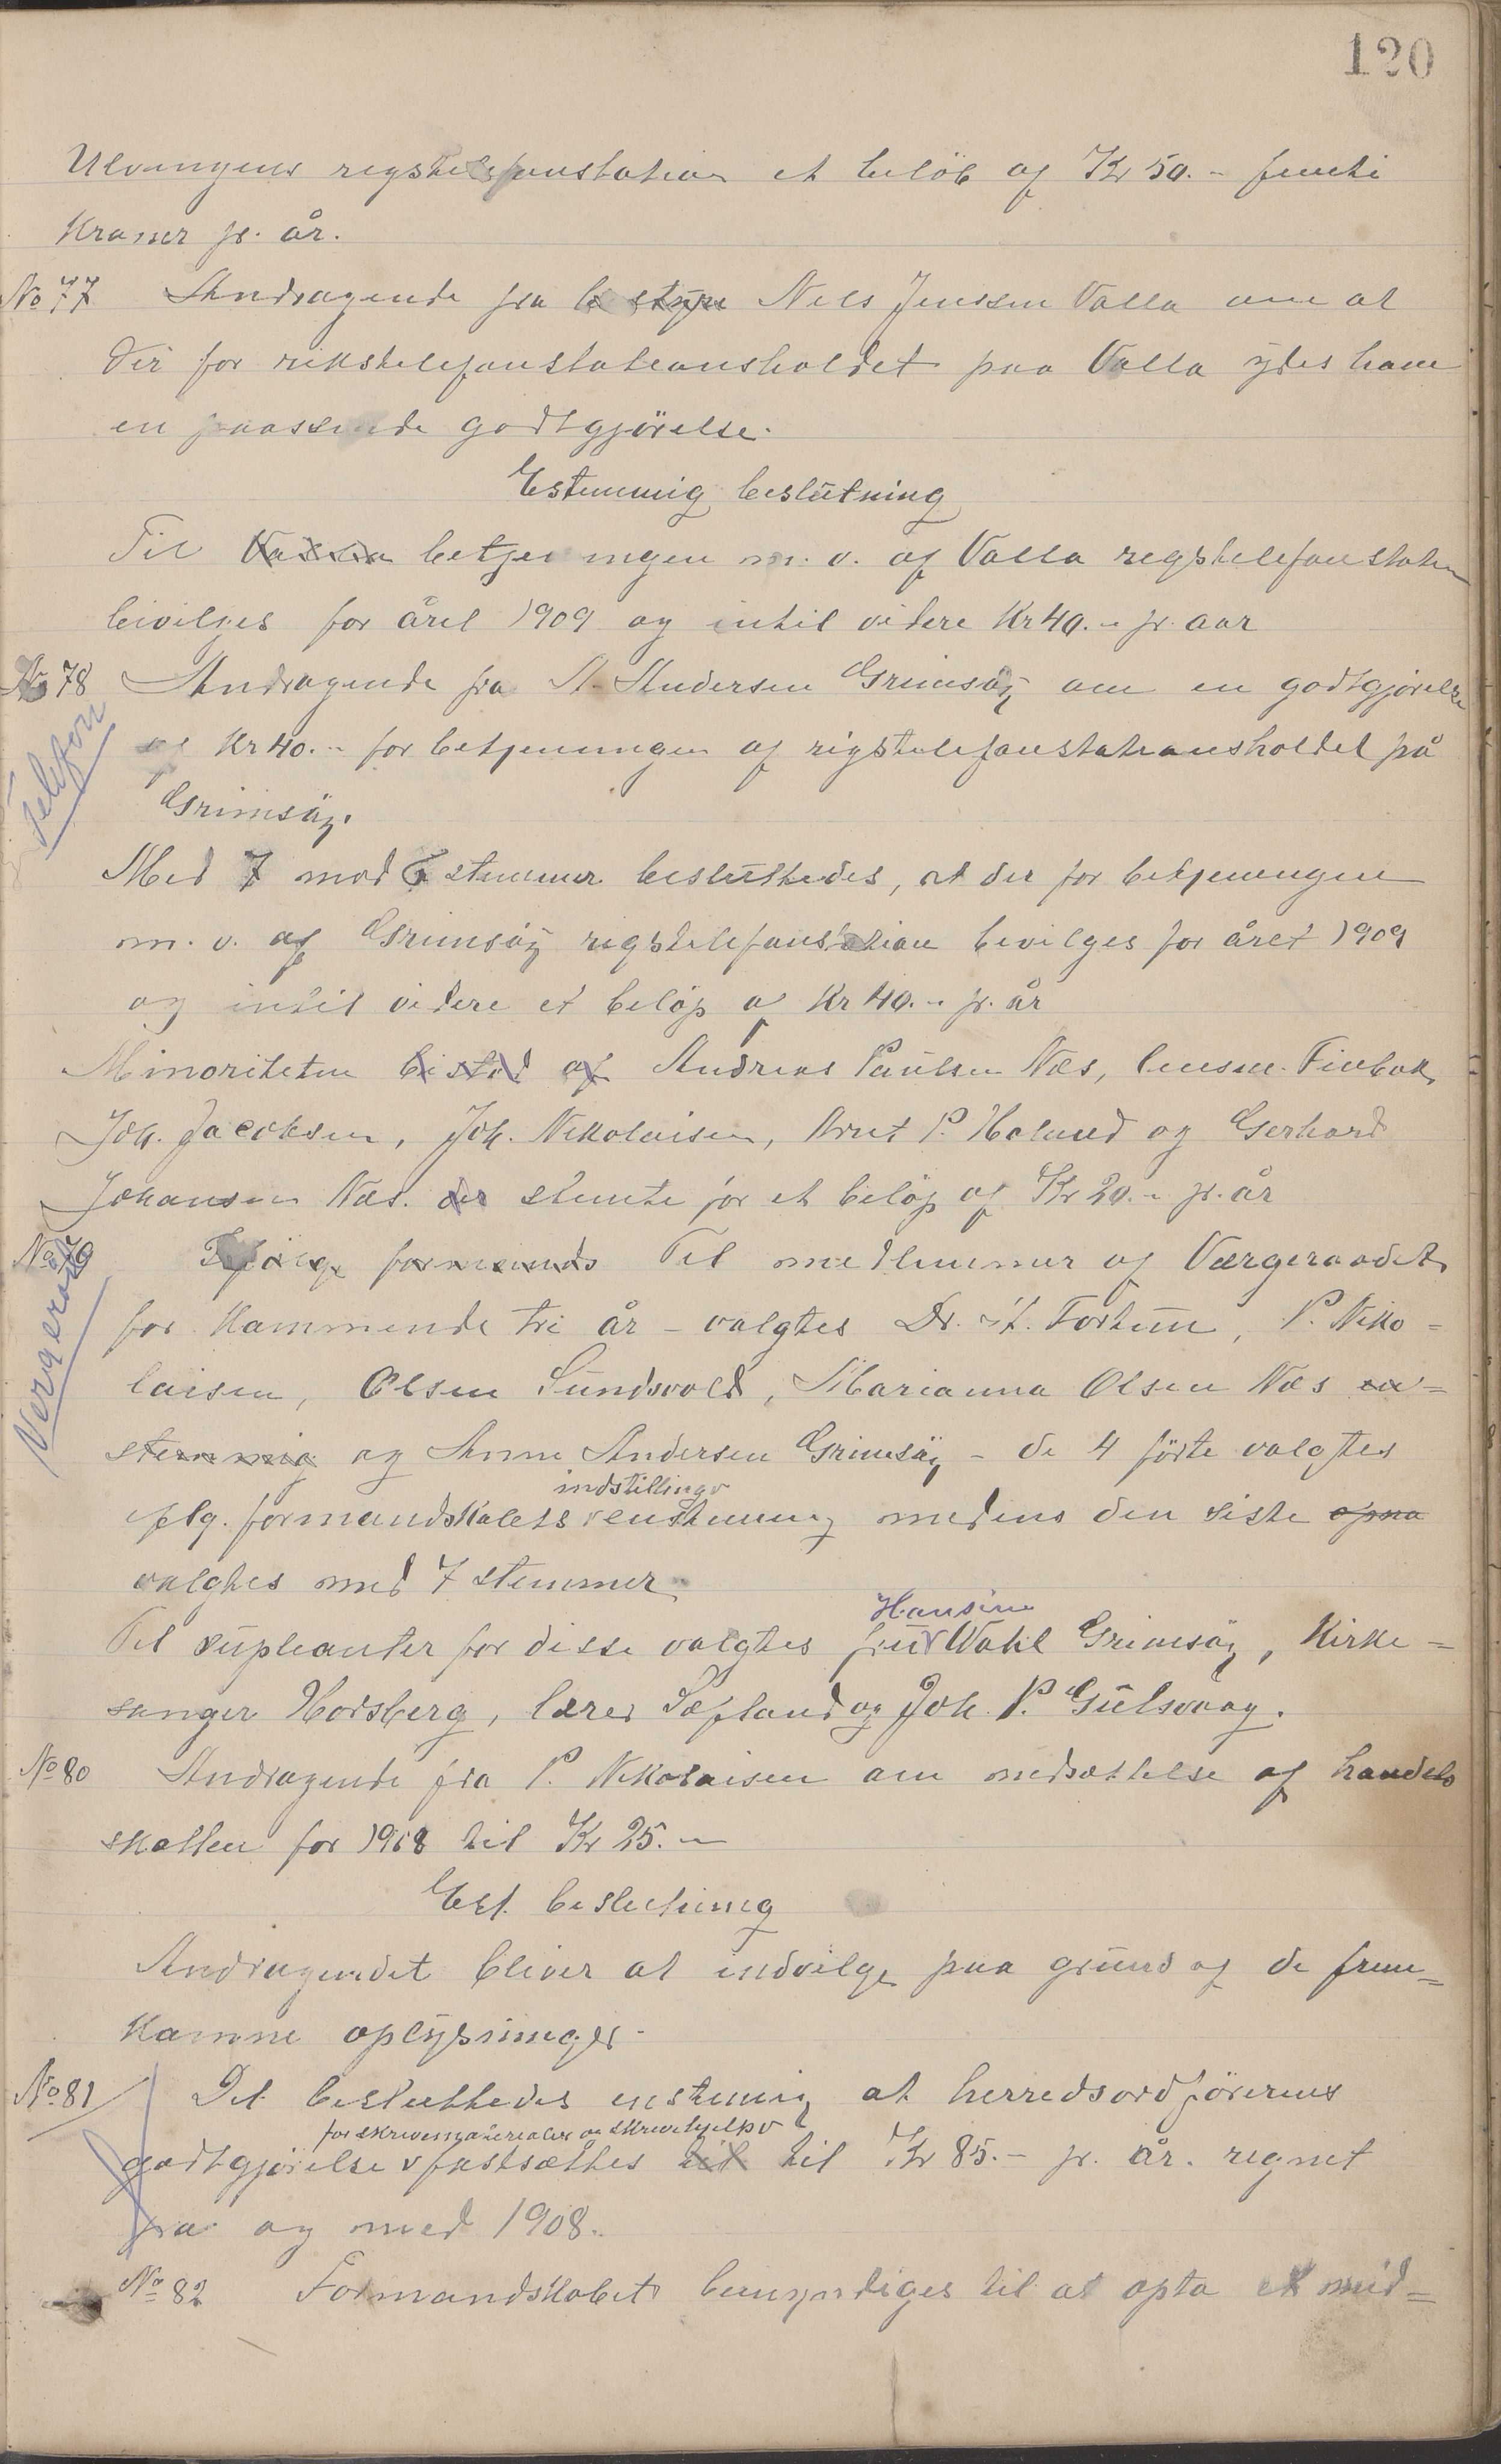 120
Ulvingens regstelefonstation et beløb af Kr 50.- femti
kroner pr. år.
No 77 Andragende fra bestyre Nils Jenssen Valla om at
der for rikstelefonstationsholdet paa Valla ydes ham
en passende godtgjörelse.
Estemmig beslutning
Til betjeningen m. v. af Valla regstelefonstation
bevilges for året 1909 og intil videre Kr 40.- pr. aar
No 78 Andragende fra A. Andersen Grimsöy om en godtgjörelse
Telefon
af Kr 40.- for betjeningen af rigstelefonstationsholdet på
Grimsöy.
Med 7 mod 6 stemmer besluttedes, at der for betjeningen
m. v. af Grimsöy regstelefonstation bevilges for året 1909
og intil videre et beløp af Kr 40.- pr. år
Minoriteten bestod af Andreas Paulsen Næs, lensm. Finbak,
Joh. Jacobsen, Joh. Nikolaisen, Arnt P. Holand og Gerhard
Johansen Næs. der stemte for et beløp af Kr 20.- pr. år
No 79 Ifölge formands Til medlemmer af Værgeraadet
Vergeråd
for kommende tre år - valgtes Dr. Fortun, P. Niko=
laisen, Olsen Sundsvold, Marianna Olsen Næs en=
stemmig og Anne Andersen Grimsöy - de 4 förte valgtes
indstilling
iflg. formandskabets enstemmig medens den siste
valgtes med 7 stemmer
Hansine
Til supleanter for disse valgtes fru Wahl Grimsöy, Kirke=
sanger Hodsberg, lærer Sæfland og Joh. P. Gulsvaag.
No 80 Andragende fra P. Nikolaisen om nedsættelse af handels
skatten for 1908 til Kr 25.-
Est. beslutning
Andragendet bliver at indvilge paa grund af de frem=
komne oplysninger.
No 81 Det besluttedes enstemig at herredsordförerens
for skrivematerialer og skrivehjelp
godtgjörelse fastsættes til til Kr 85.- pr. år. regnet
fra og med 1908.
No 82 Formandskabet bemyndiges til at opta et mid=